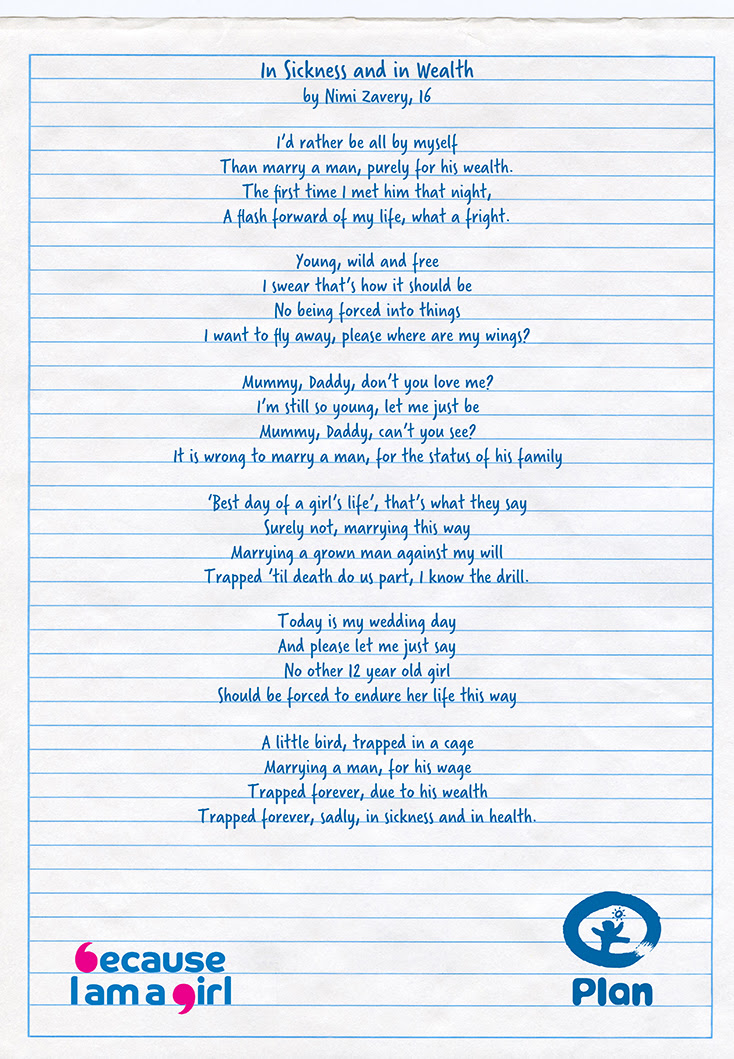 In Sickness and in Wealth
by Nimi Zavery, 16
I'd rather be all by myself
Than marry a man, purely for his wealth.
The first time I met him that night,
A flash forward of my life, what a fright.
Young, wild and free
I swear that's how it should be
No being forced into things
I want to fly away, please where are my wings?
Mummy, Daddy, don't you love me?
I'm still so young, let me just be
Mummy, Daddy, can't you see?
It is wrong to marry a man, for the status of his family
'Best day of a girl's life', that's what they say
Surely not, marrying this way
Marrying a grown man against my will
Trapped 'til death do us part, I know the drill.
Today is my wedding day
And please let me just say
No other 12 year old girl
Should be forced to endure her life this way
A little bird, trapped in a cage
Marrying a man, for his wage
Trapped forever, due to his wealth
Trapped forever, sadly, in sickness and in health.
Because
I am a girl
Plan